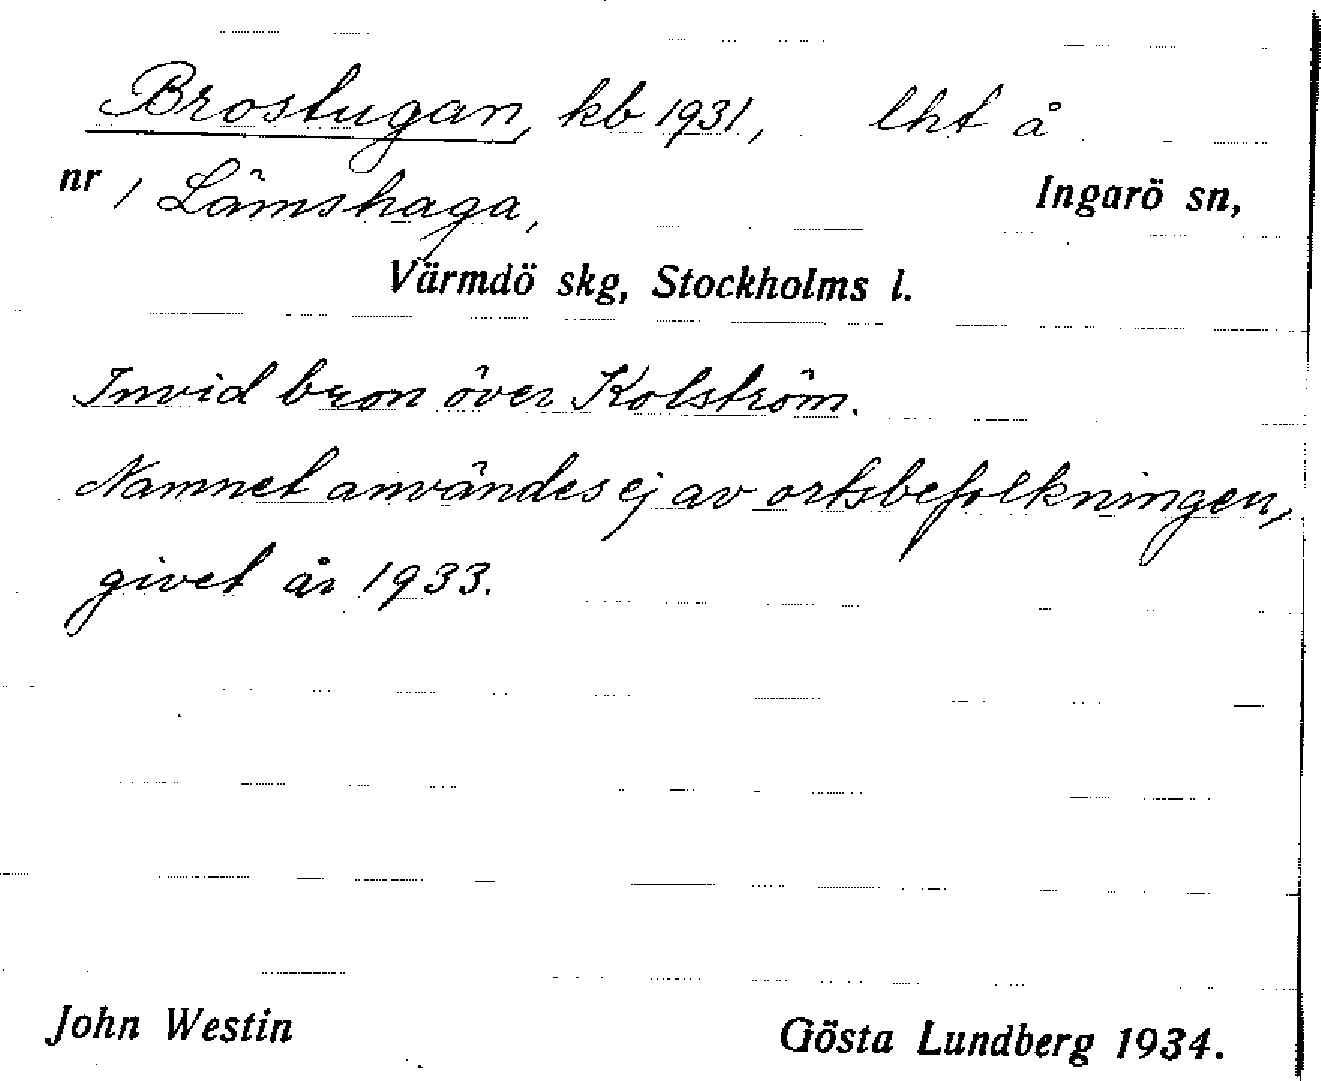 Brostugan, kb 1931, lht å
nr 1 Lämshaga, Ingarö sn,
Värmdö skg, Stockholms l.
Invid bron över Kolström.
Namnet användes ej av ortsbefolkningen,
givet år 1933.
John Westin Gösta Lundberg 1934.